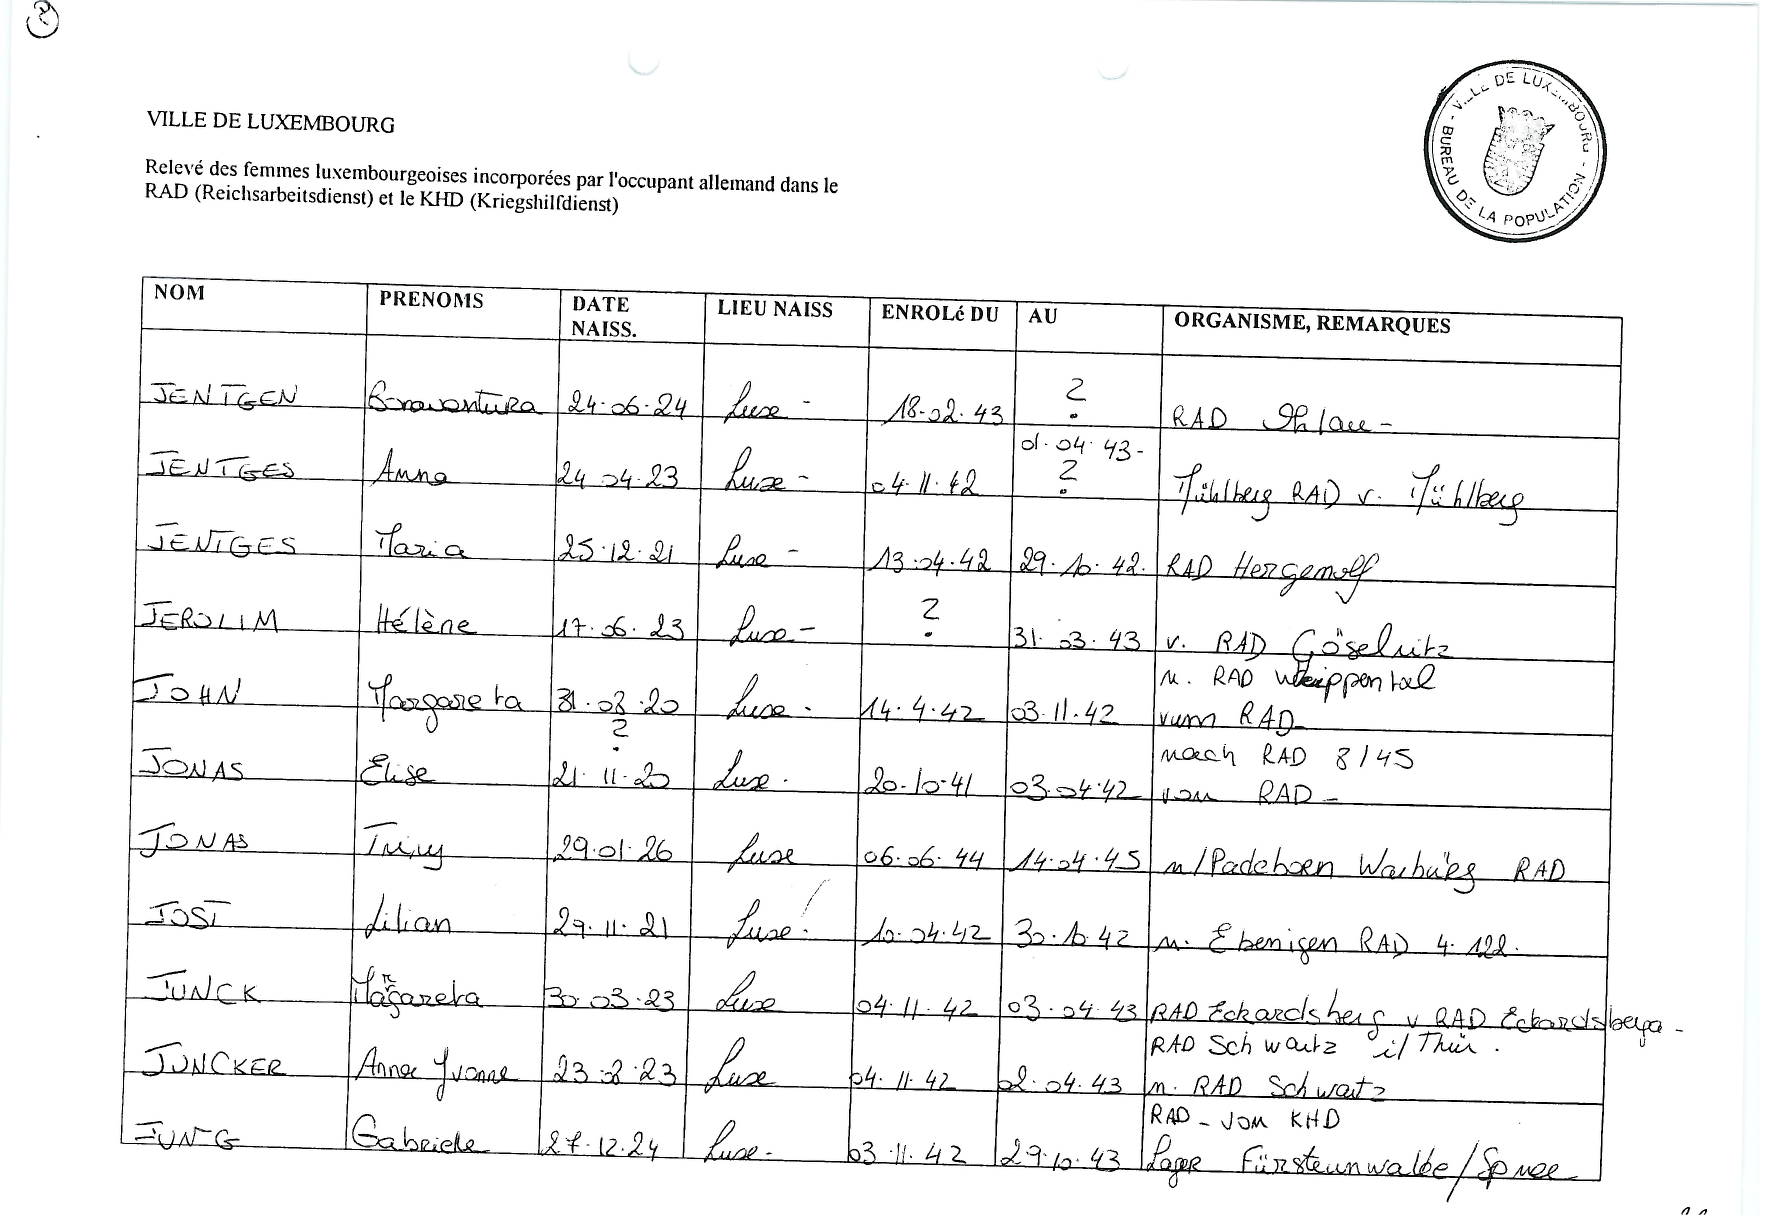 2
VILLE DE LUXEMBOURG
VILLE DE LUXEMBOURG - BUREAU DE LA POPULATION -
Relevé des femmes luxembourgeoises incorporées par l'occupant allemand dans le
RAD (Reichsarbeitsdienst) et le KHD (Kriegshilfdienst)
NOM PRENOMS DATE NAISS. LIEU NAISS ENROLé DU AU ORGANISME, REMARQUES
JENTGEN Bonaventura 24.06.24 Luxe - 18.02.43 ? RAD
JENTGES Anna 24.04.23 Luxe - 04.11.42 01.04.43 - ? Mühlberg RAD v. Mühlberg
JENTGES Maria 25.12.21 Luxe - 13.04.42 29.10.42. RAD
JEROLIM Hélène 17.06.23 Luxe - ? 31.03.43 v. RAD
JOHN Margareta 31.08.20 ? Luxe. 14.4.42 03.11.42 n. RAD vum RAD
JONAS Elise 21.11.20 Luxe. 20.10.41 03.04.42 nach RAD 8/45 vom RAD -
JONAS 29.01.26 Luxe 06.06.44 14.04.45 n/Padeborn RAD
JOST Lilian 27.11.21 Luxe. 10.04.42 30.10.42 n. RAD 4.122.
JUNCK Margareta 30.03.23 Luxe 04.11.42 03.04.43 RAD Eckardsberg v RAD Eckardsberga -
JUNCKER Anne Yvonne 23.08.23 Luxe 04.11.42 02.04.43 RAD Schwartz i/Thür. n. RAD Schwartz
JUNG Gabriele 27.12.24 Luxe. 03.11.42 29.10.43 RAD - vom KHD Lager Fürsteunwalde/Spree